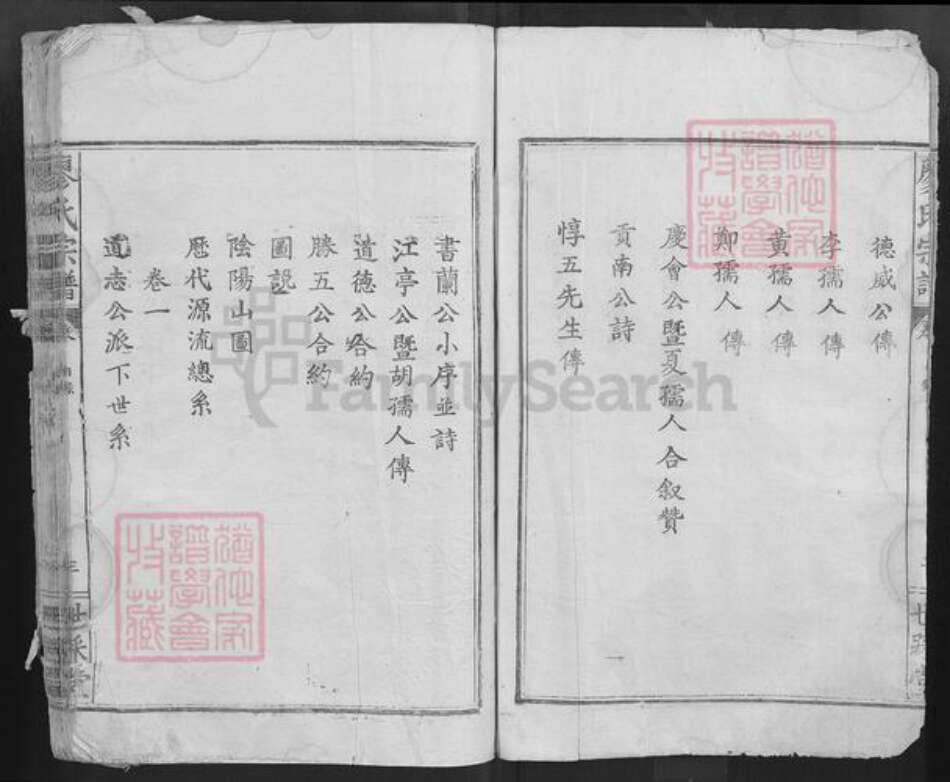 德威公傳
李孺人傳
黄孺人傳
鄭孺人傳
慶會公暨夏孺人合叙贊
貢南公詩
惇五先生傳
書蘭公小序並詩
江亭公暨胡孺人傳
道德公合約
勝五公合約
圖説
陰陽山圖
歷代源流總系
卷一
道志公派下世系
廖氏宗譜
世綵堂
譜學會
收藏
FamilySearch